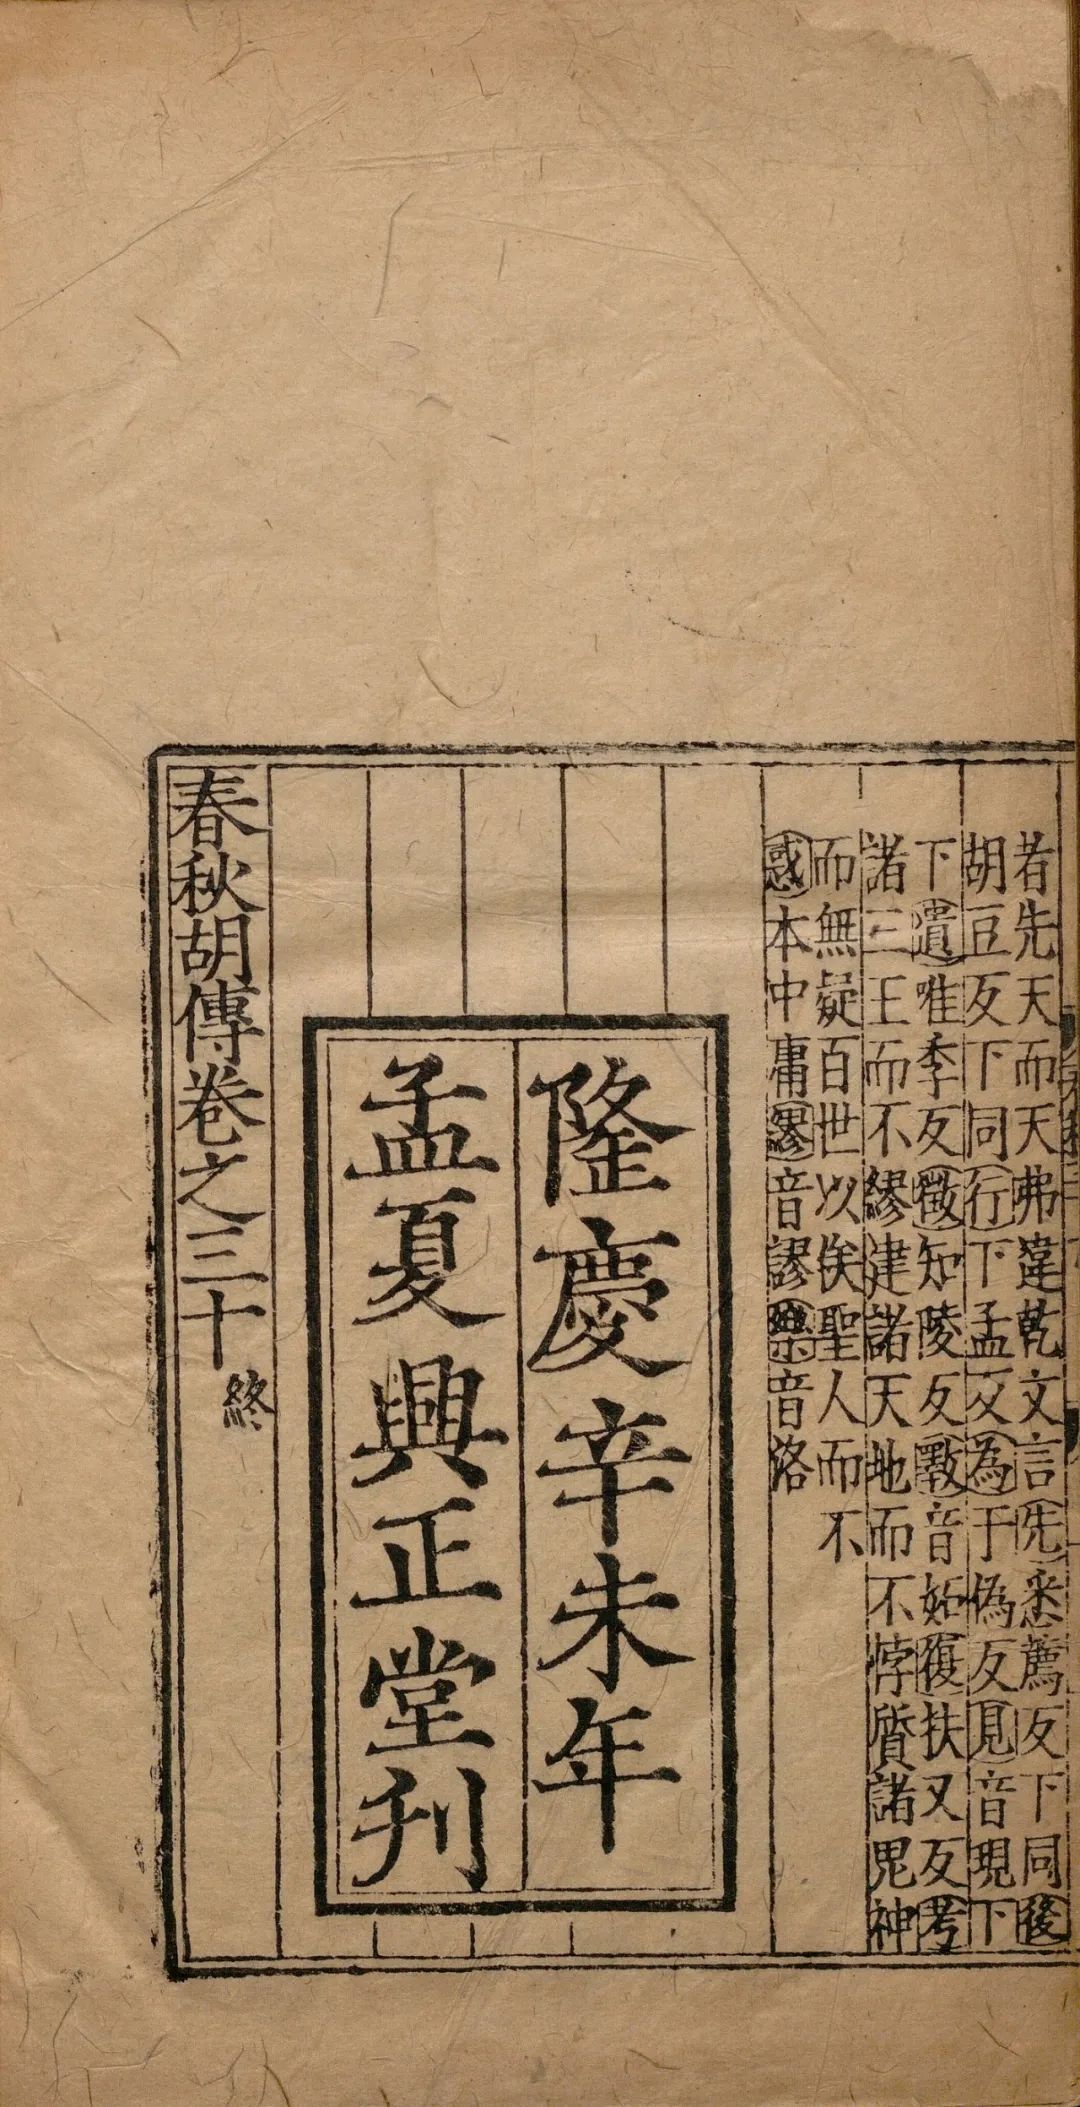 者先天而天弗違乾文言先悉薦反下同後
胡豆反下同行下孟反為于偽反見音現下
下遺唯季反徵知陵反斁音妬復扶又反考
諸三王而不繆建諸天地而不悖質諸鬼神
而無疑百世以俟聖人而不
惑本中庸繆音謬樂音洛
隆慶辛未年
孟夏興正堂刊
春秋胡傳卷之三十終